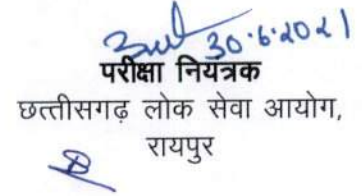 30.6.2021
परीक्षा नियंत्रक
छत्तीसगढ़ लोक सेवा आयोग,
रायपुर